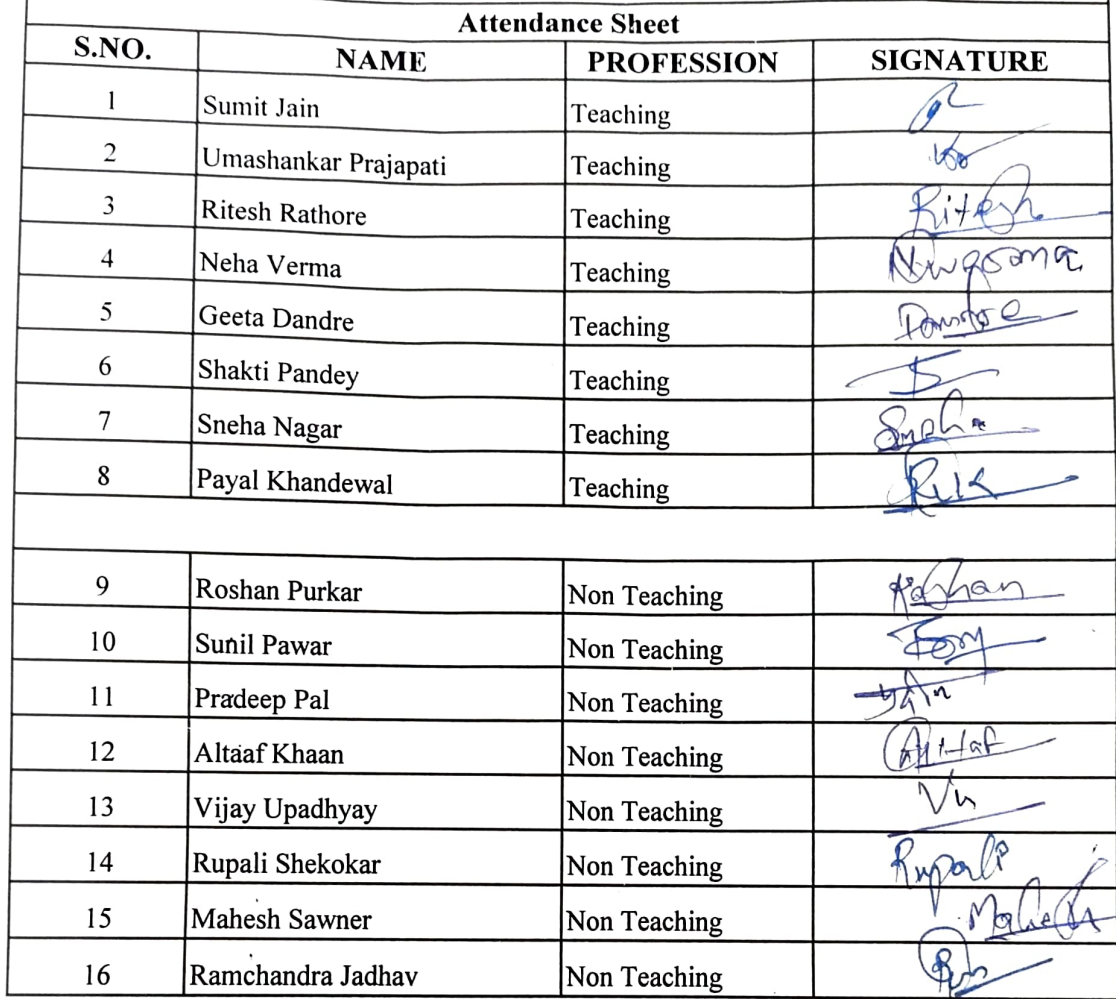 Attendance Sheet
S.NO. NAME PROFESSION SIGNATURE
1 Sumit Jain Teaching
2 Umashankar Prajapati Teaching
3 Ritesh Rathore Teaching Ritesh
4 Neha Verma Teaching
5 Geeta Dandre Teaching
6 Shakti Pandey Teaching
7 Sneha Nagar Teaching Sneha
8 Payal Khandewal Teaching
9 Roshan Purkar Non Teaching Roshan
10 Sunil Pawar Non Teaching
11 Pradeep Pal Non Teaching
12 Altaaf Khaan Non Teaching
13 Vijay Upadhyay Non Teaching
14 Rupali Shekokar Non Teaching Rupali
15 Mahesh Sawner Non Teaching Mahesh
16 Ramchandra Jadhav Non Teaching